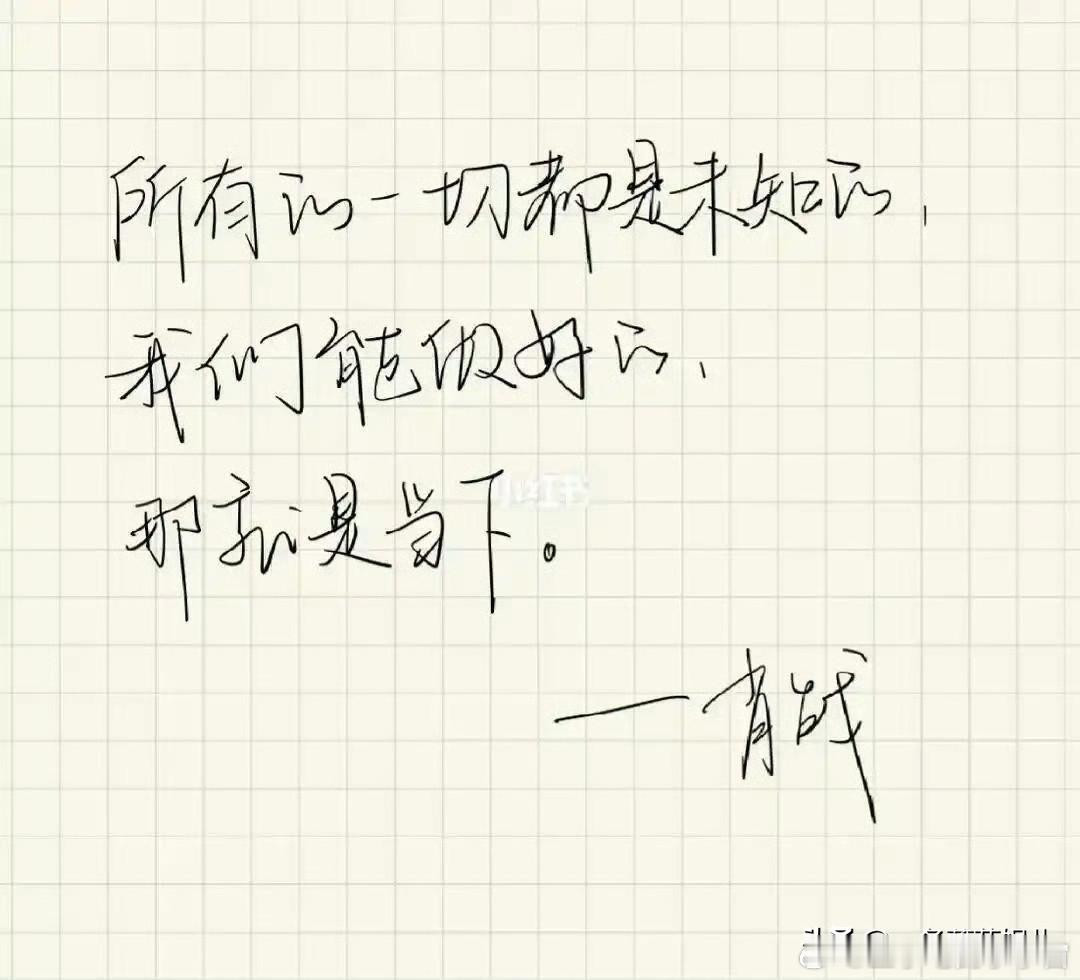 所有的一切都是未知的，
我们能做好的、
那就是当下。
小红书
——肖战